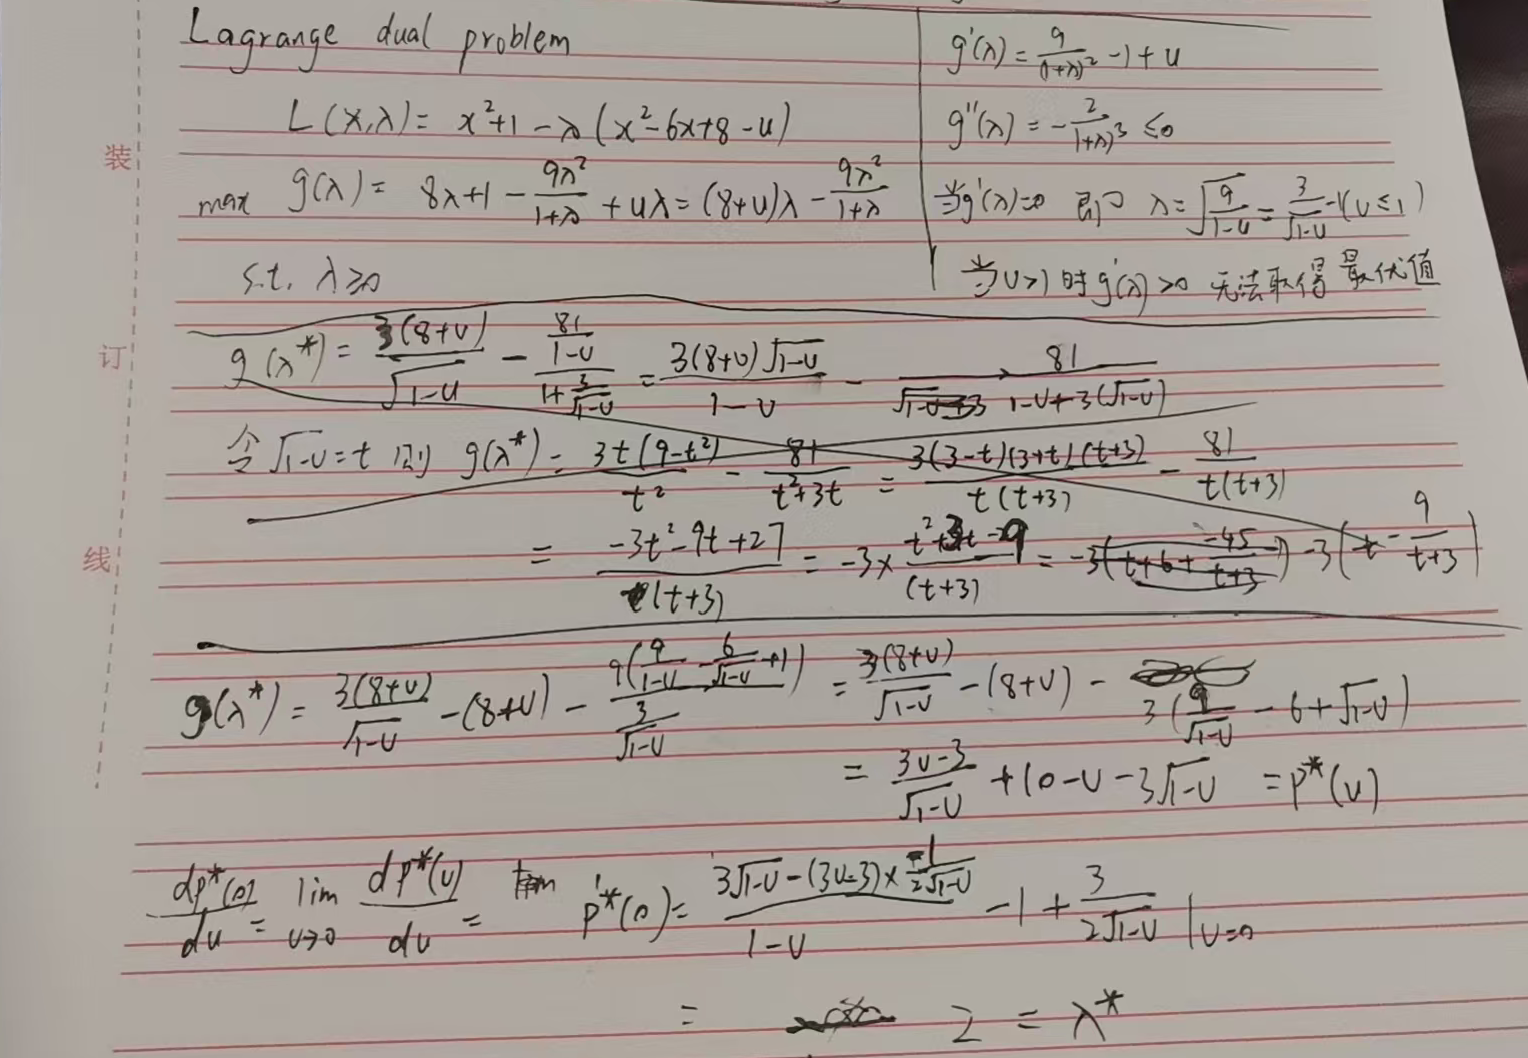 Lagrange dual problem
L(x,λ) = x²+1 - λ(x²-6x+8-u)
max g(λ) = 8λ+1 - 9λ²/(1+λ) + uλ = (8+u)λ - 9λ²/(1+λ)
s.t. λ≥0
g'(λ) = 9/(1+λ)² - 1 + u
g''(λ) = -2/(1+λ)³ ≤0
当g'(λ)=0 即 λ = √(9/(1-u)) = 3/√(1-u) - 1 (u≤1)
当u>1时 g'(λ)>0 无法取得最优值
g(λ*) = 3(8+u)/√(1-u) - (81/(1-u))/(1+3/√(1-u)) = 3(8+u)√(1-u)/(1-u) - 81/(1-u+3(√(1-u)))
令√(1-u)=t 则 g(λ*) = 3t(9-t²)/t² - 81/(t²+3t) = 3(3-t)(3+t)(t+3)/(t(t+3)) - 81/(t(t+3))
= (-3t²-9t+27)/(t+3) = -3×(t²+3t-9)/(t+3) = -3(t+6+(-45)/(t+3)) -3(t - 9/(t+3))
g(λ*) = 3(8+u)/√(1-u) - (8+u) - 9(9/(1-u) - 6/√(1-u) + 1)/(3/√(1-u)) = 3(8+u)/√(1-u) - (8+u) - 3(9/√(1-u) - 6 + √(1-u))
= (3u-3)/√(1-u) + 10 - u - 3√(1-u) = p*(u)
dp*(0)/du = lim u→0 dp*(u)/du = p'*(0) = (3√(1-u) - (3u-3)×-1/(2√(1-u)))/(1-u) - 1 + 3/(2√(1-u)) |u=0
= 2 = λ*
装
订
线